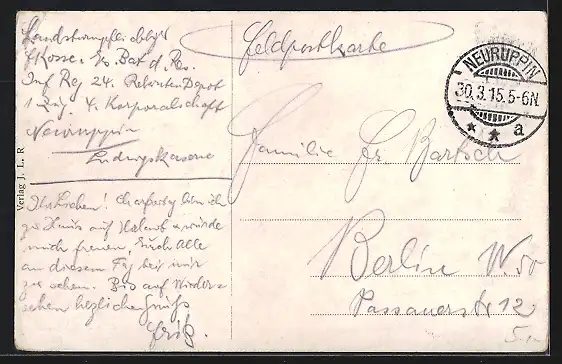 Landsturmpflichtiger
Krosse 1/2 Bat d. Rs.
Inf Reg 24. Rekruten Depot
1 Zug. 4. Korporalschaft
Neuruppin
Ludwigskaserne
Ihr Lieben! Charfreitag bin ich
zu Haus auf Urlaub u würde
mich freuen, Euch Alle
an diesem Tg bei mir
zu sehen. Bis auf Wieder=
sehen herzliche Grüße
Fritz.
Verlag J. L. R
Feldpostkarte
NEURUPPIN
30.3.15.5-6N.
* * a
Familie Fr Bartsch
Berlin W. 50
Passauerstr 12